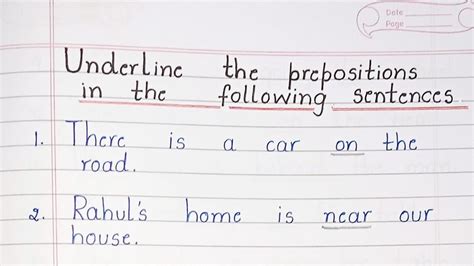 Date
Page
Underline the prepositions
in the following sentences
1. There is a car on the
road.
2. Rahul's home is near our
house.